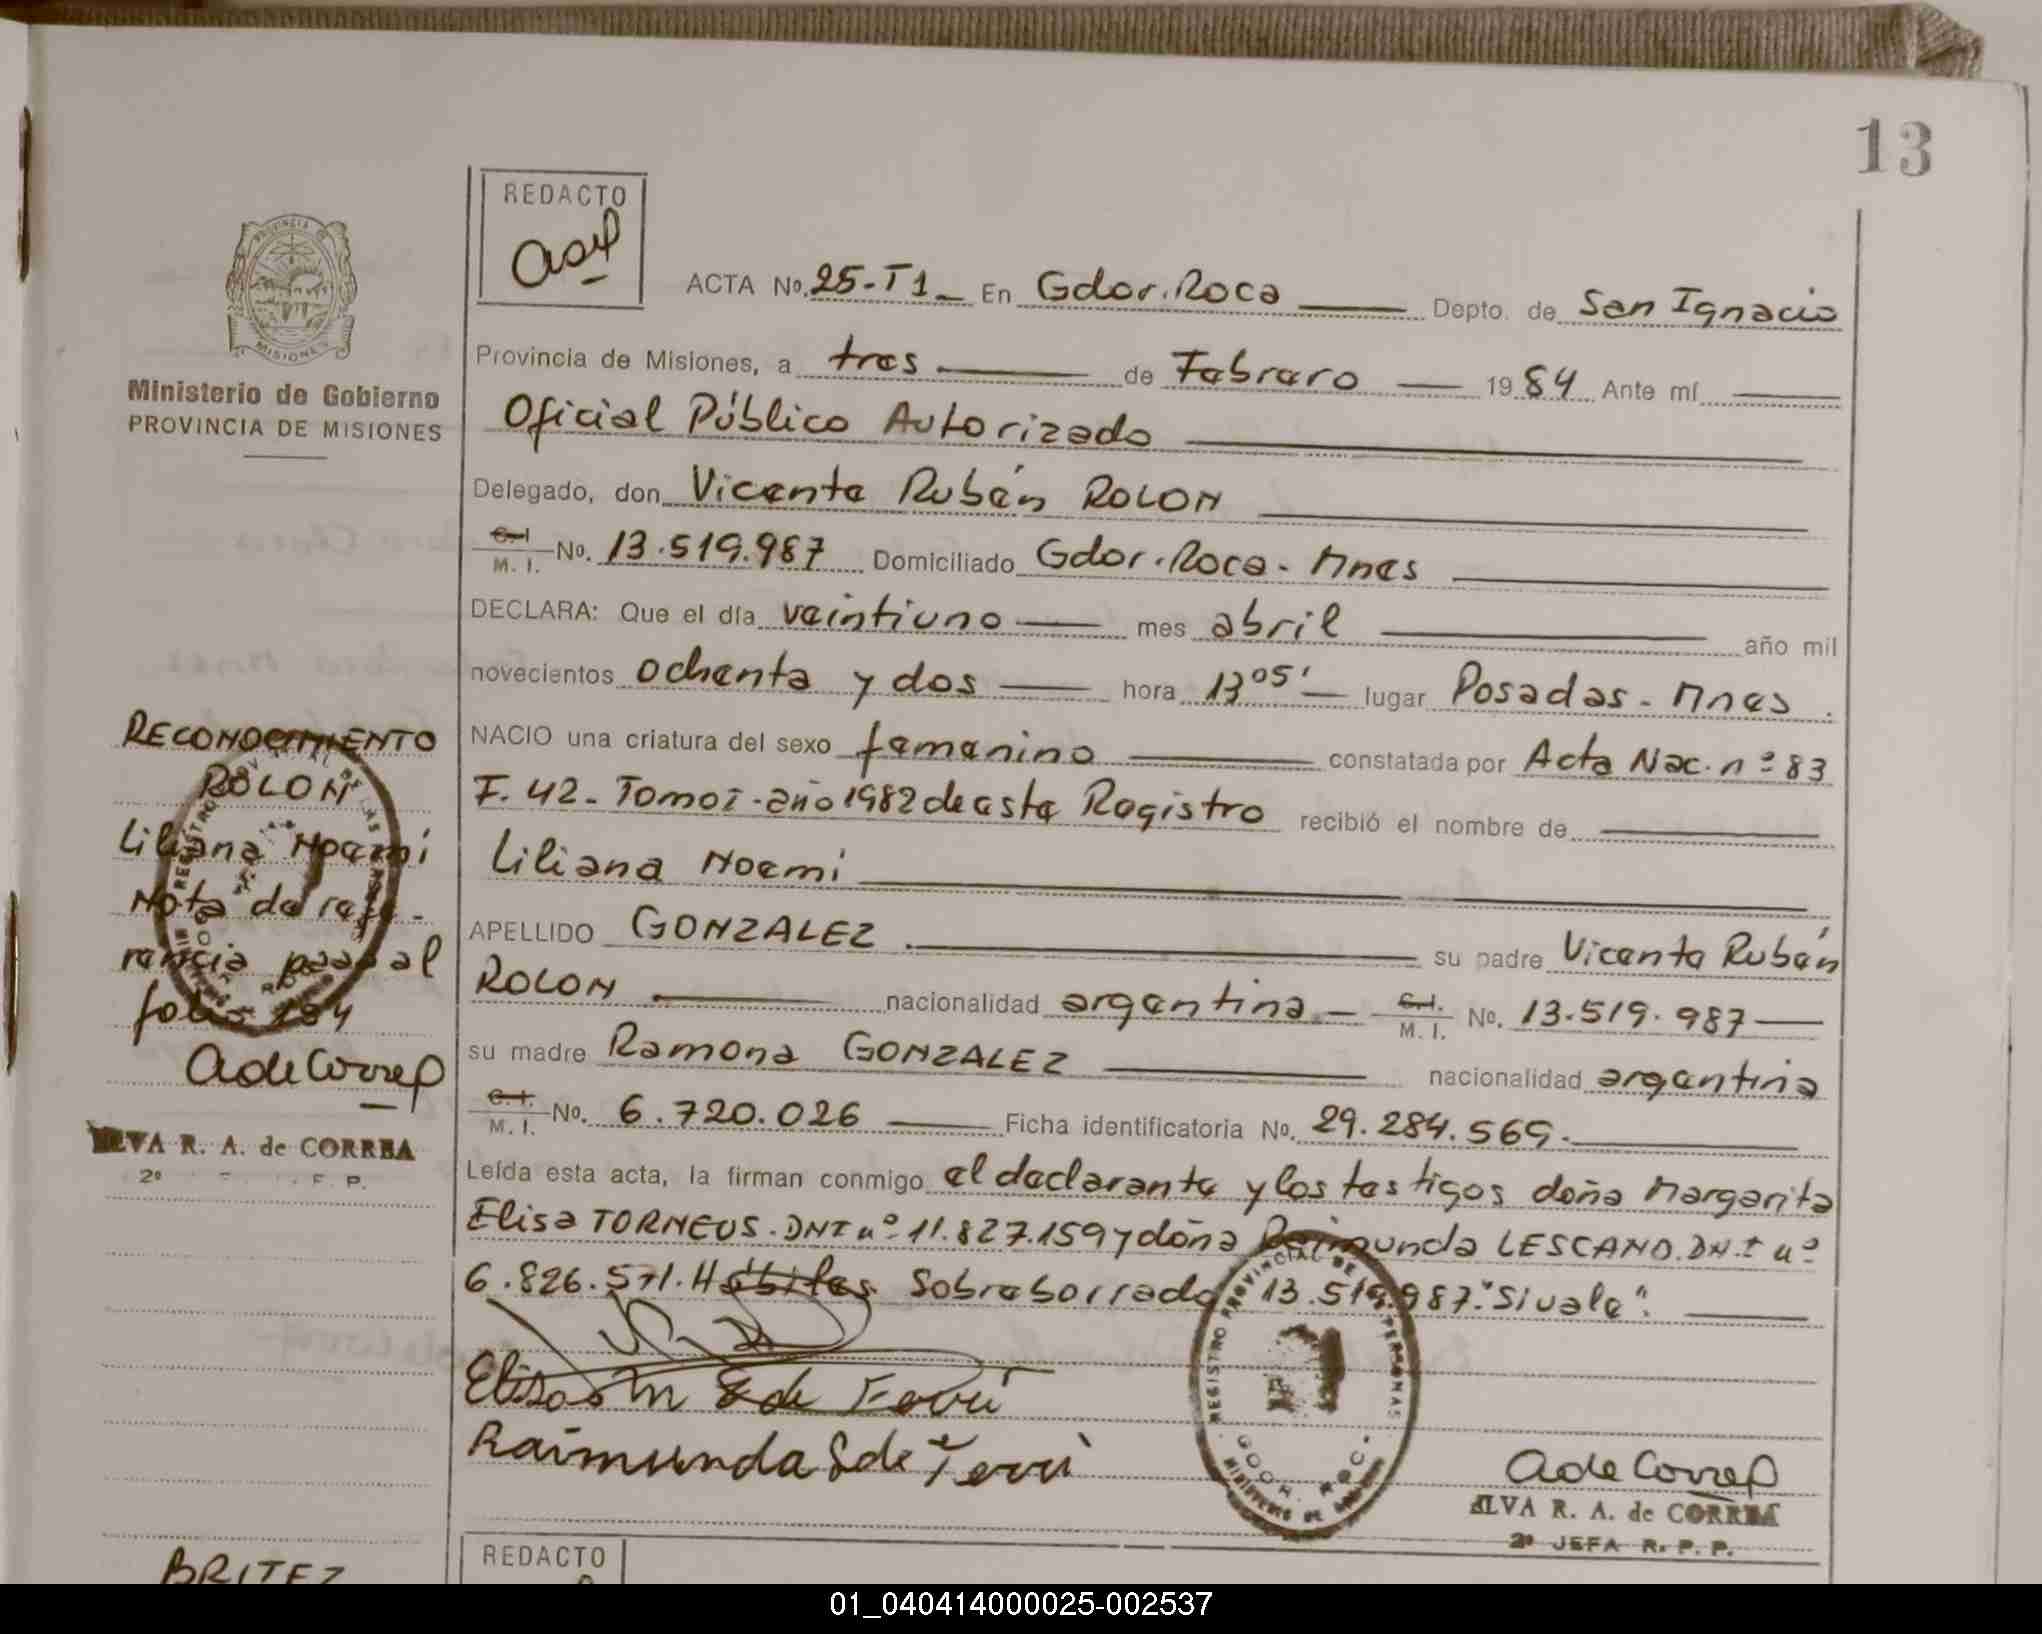 13
REDACTO
ACTA No. 25-T1_ En Gdor. Roca Depto. de San Ignacio
Provincia de Misiones, a tres de Febrero 1984 Ante mí
Oficial Público Autorizado
Delegado, don Vicente Rubén ROLON
C.I. M. I. No. 13.519.987 Domiciliado Gdor. Roca - Mnes
DECLARA: Que el día veintiuno mes abril año mil
novecientos ochenta y dos hora 13 05' lugar Posadas - Mnes.
NACIO una criatura del sexo femenino constatada por Acta Nac. nº 83
F. 42 - Tomo I - año 1982 de este Registro recibió el nombre de
Liliana Noemi
APELLIDO GONZALEZ su padre Vicente Rubén
ROLON nacionalidad argentina C.I. M. I. No. 13.519.987
su madre Ramona GONZALEZ nacionalidad argentina
C.I. M. I. No. 6.720.026 Ficha identificatoria No. 29.284.569.
Leída esta acta, la firman conmigo el declarante y los testigos doña Margarita
Elisa TORNEUS. DNI nº 11.827.159 y doña Raimunda LESCANO. DN.I nº
6.826.571. Hábiles. Sobreborrado 13.519.987. "Si vale".
Raimunda
REGISTRO PROVINCIAL DE LAS PERSONAS
AdeCorrea
ELVA R. A. de CORREA
2º JEFA R. P. P.
PROVINCIA DE
MISIONES
Ministerio de Gobierno
PROVINCIA DE MISIONES
RECONOCIMIENTO
ROLON
Liliana Noemi
Nota de refe-
rencia pasa al
folio 184
AdeCorrea
ELVA R. A. de CORREA
BRITEZ
REDACTO
01_040414000025-002537